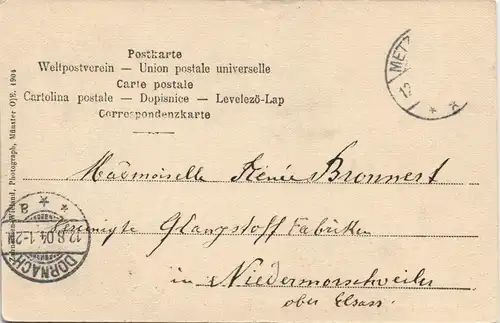 Postkarte
Weltpostverein — Union postale universelle
Carte postale
Cartolina postale — Dopisnice — Levelezö-Lap
Correspondenzkarte
METZ
12
* *
Mademoiselle Renée Bronnert
Vereinigte Glanzstoff Fabriken
in Niedermorschweiler
ober Elsass.
Photograph, Münster O/E. 1904
DORNACH
12.8.04.1-2
* B *